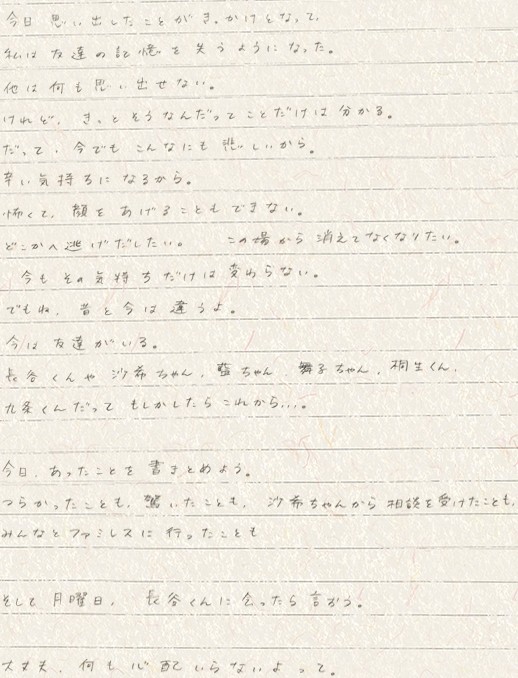 今日 思い出したことがきっかけとなって、
私は友達の記憶を失うようになった。
他は何も思い出せない。
けれど、きっとそうなんだってことだけは分かる。
だって、今でもこんなにも悲しいから。
辛い気持ちになるから。
怖くて、顔をあげることもできない。
どこかへ逃げだしたい。 この場から消えてなくなりたい。
今もその気持ちだけは変わらない。
でもね、昔と今は違うよ。
今は友達がいる。
長谷くんや沙希ちゃん、藍ちゃん、舞子ちゃん、桐生くん、
九条くんだってもしかしたらこれから...。
今日、あったことを書きとめよう。
つらかったことも、驚いたことも、沙希ちゃんから相談を受けたことも、
みんなとファミレスに行ったことも
そして月曜日、長谷くんに会ったら言おう。
大丈夫、何も心配いらないよって。